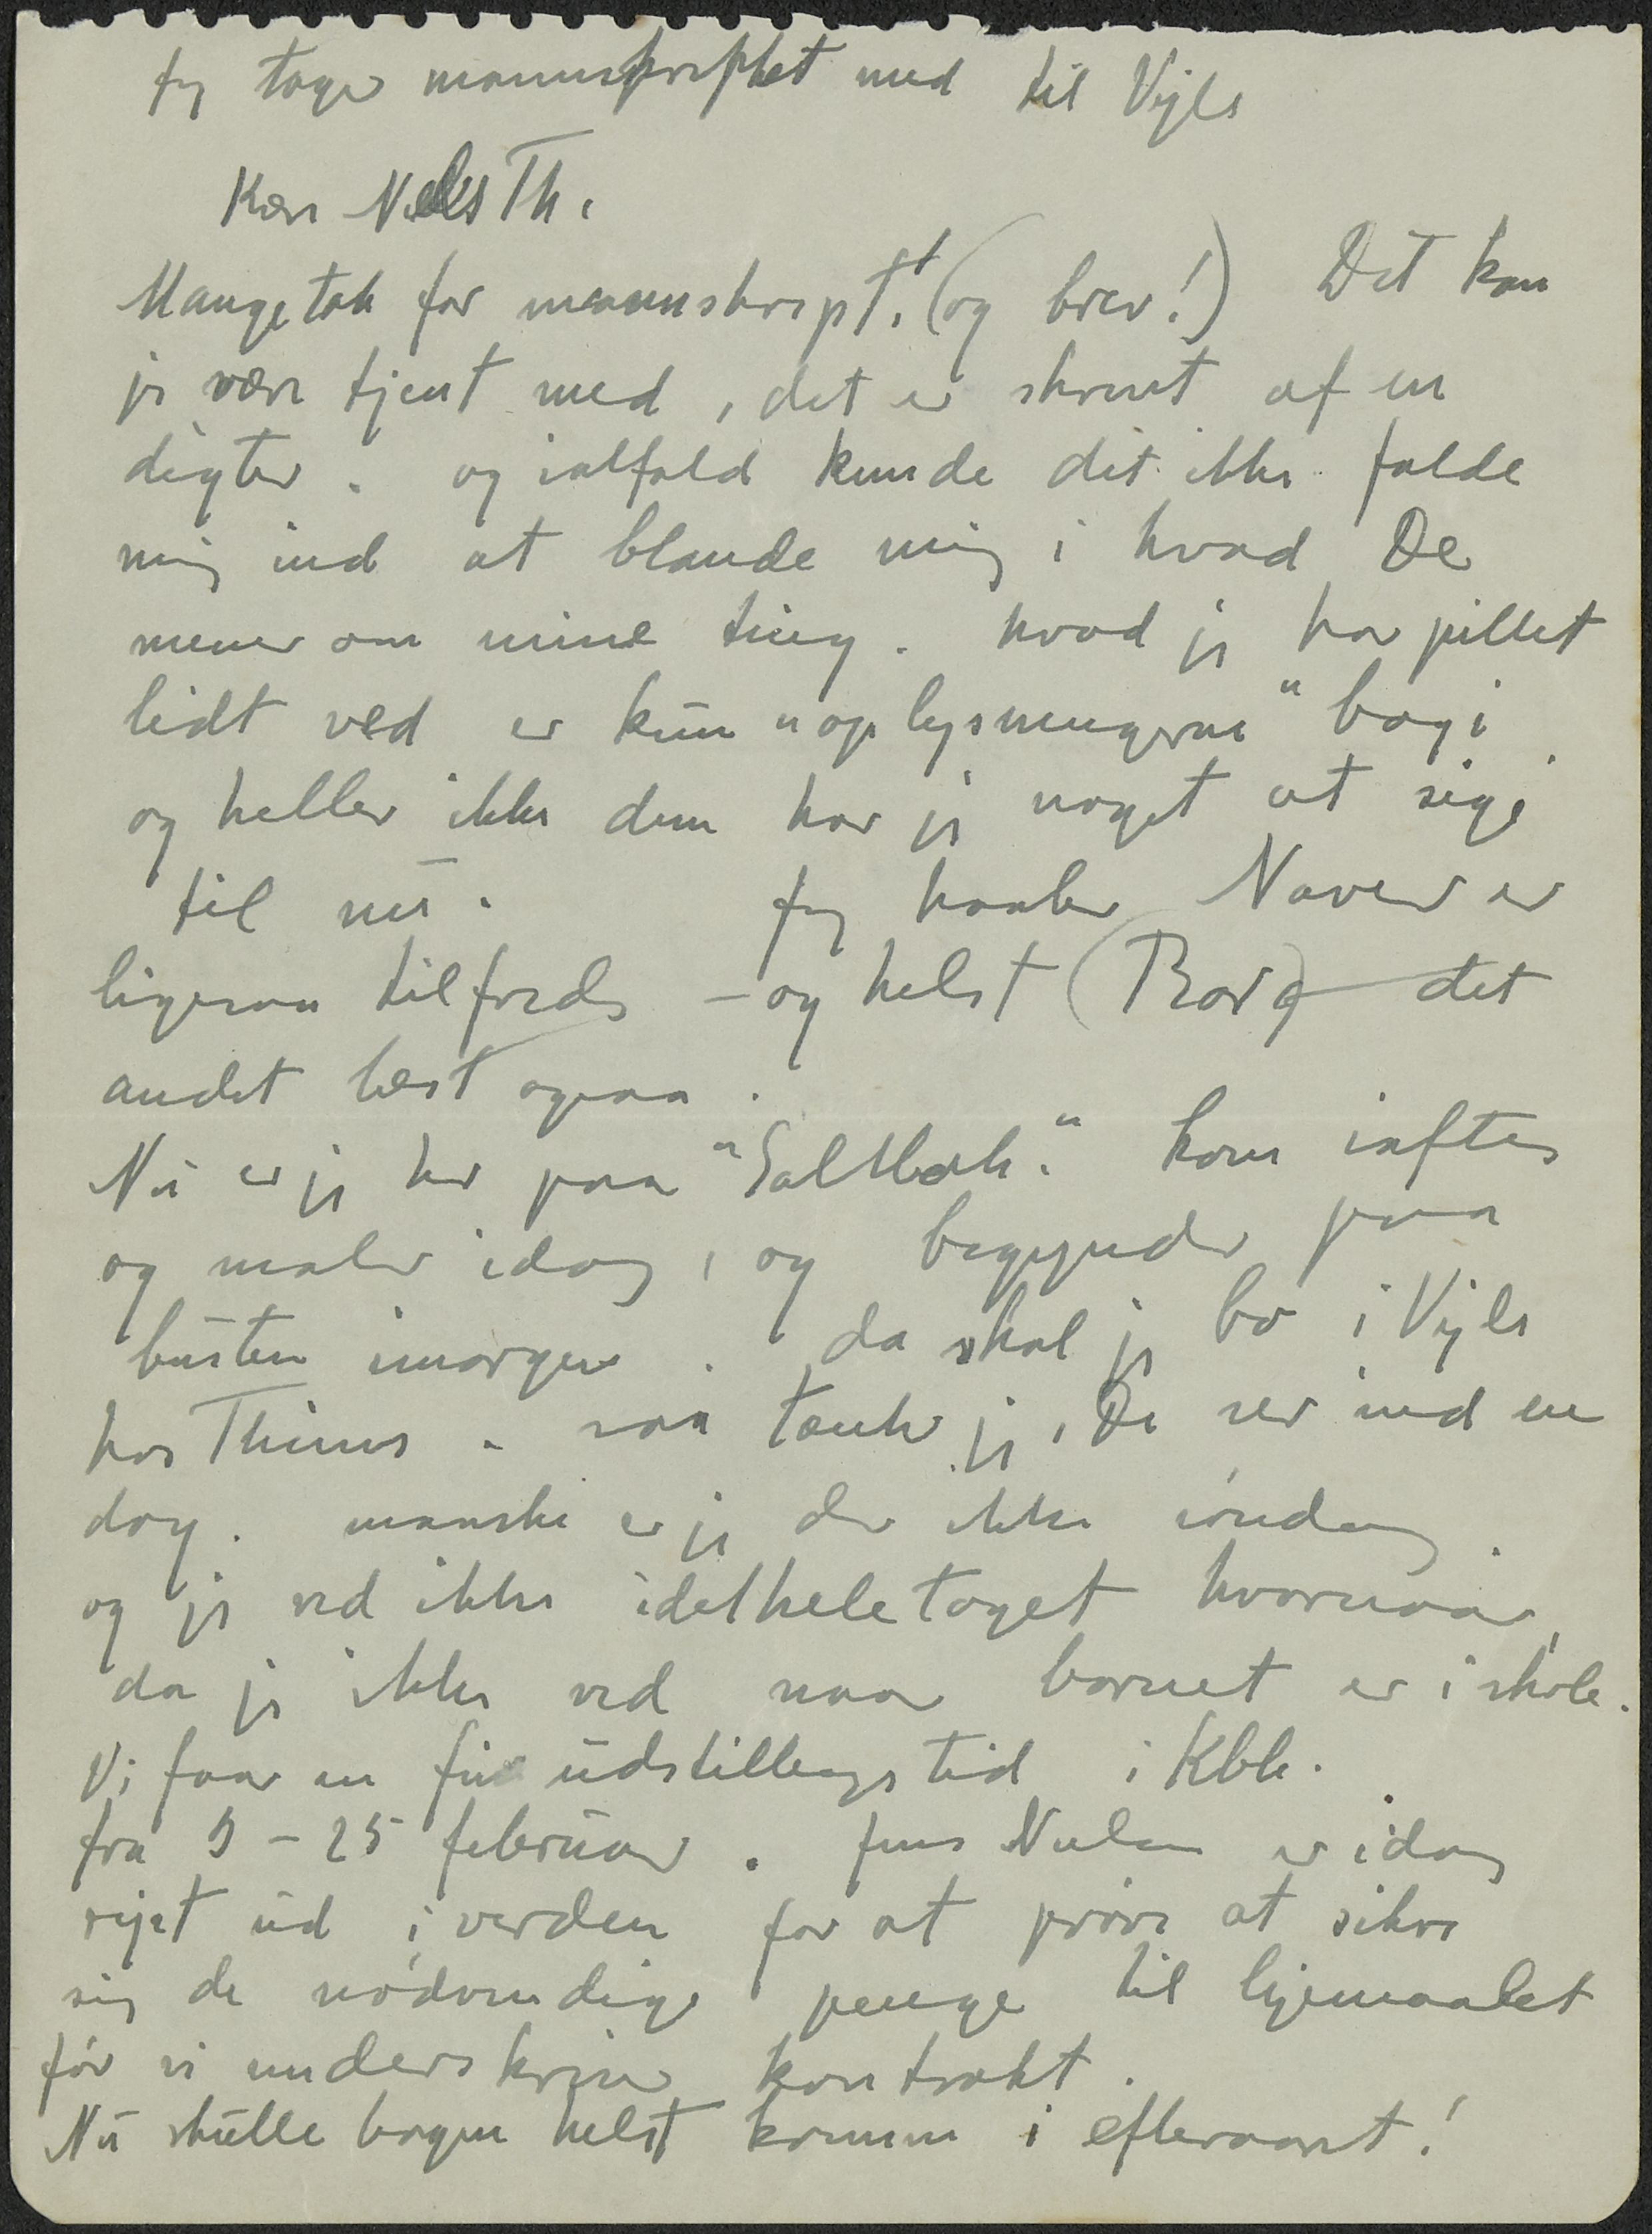 Jeg tager manuskriptet med til Vejle
Kære Niels Th.
Mange tak for manuskript. (og brev!) Det kan
jeg være tjent med, det er skrevet af en
digter. og ialfald kunde det ikke falde
mig ind at blande mig i hvad De
mener om mine ting. hvad jeg har pillet
lidt ved er kun "oplysningerne" bagi
og heller ikke dem har jeg noget at sige
til nu. Jeg haaber Naver er
ligesaa tilfreds – og helst (Borg) det
andet læst ogsaa.
Nu er jeg her paa "Saltbæk." kom iaftes
og maler idag, og begynder paa
busten imorgen. da skal jeg bo i Vejle
hos Thinus. saa tænker jeg, De ser ind en
dag. maaske er jeg der ikke søndag.
og jeg ved ikke idethele taget hvornaar,
da jeg ikke ved naar barnet er i skole.
Vi faar en fin udstillingstid i Kbh.
fra 5 – 25 februar. Jens Nielsen er idag
rejst ud i verden for at prøve at sikre
sig de nødvendige penge til lejemaalet
før vi underskriver kontrakt.
Nu skulle bogen helst komme i efteraaret!